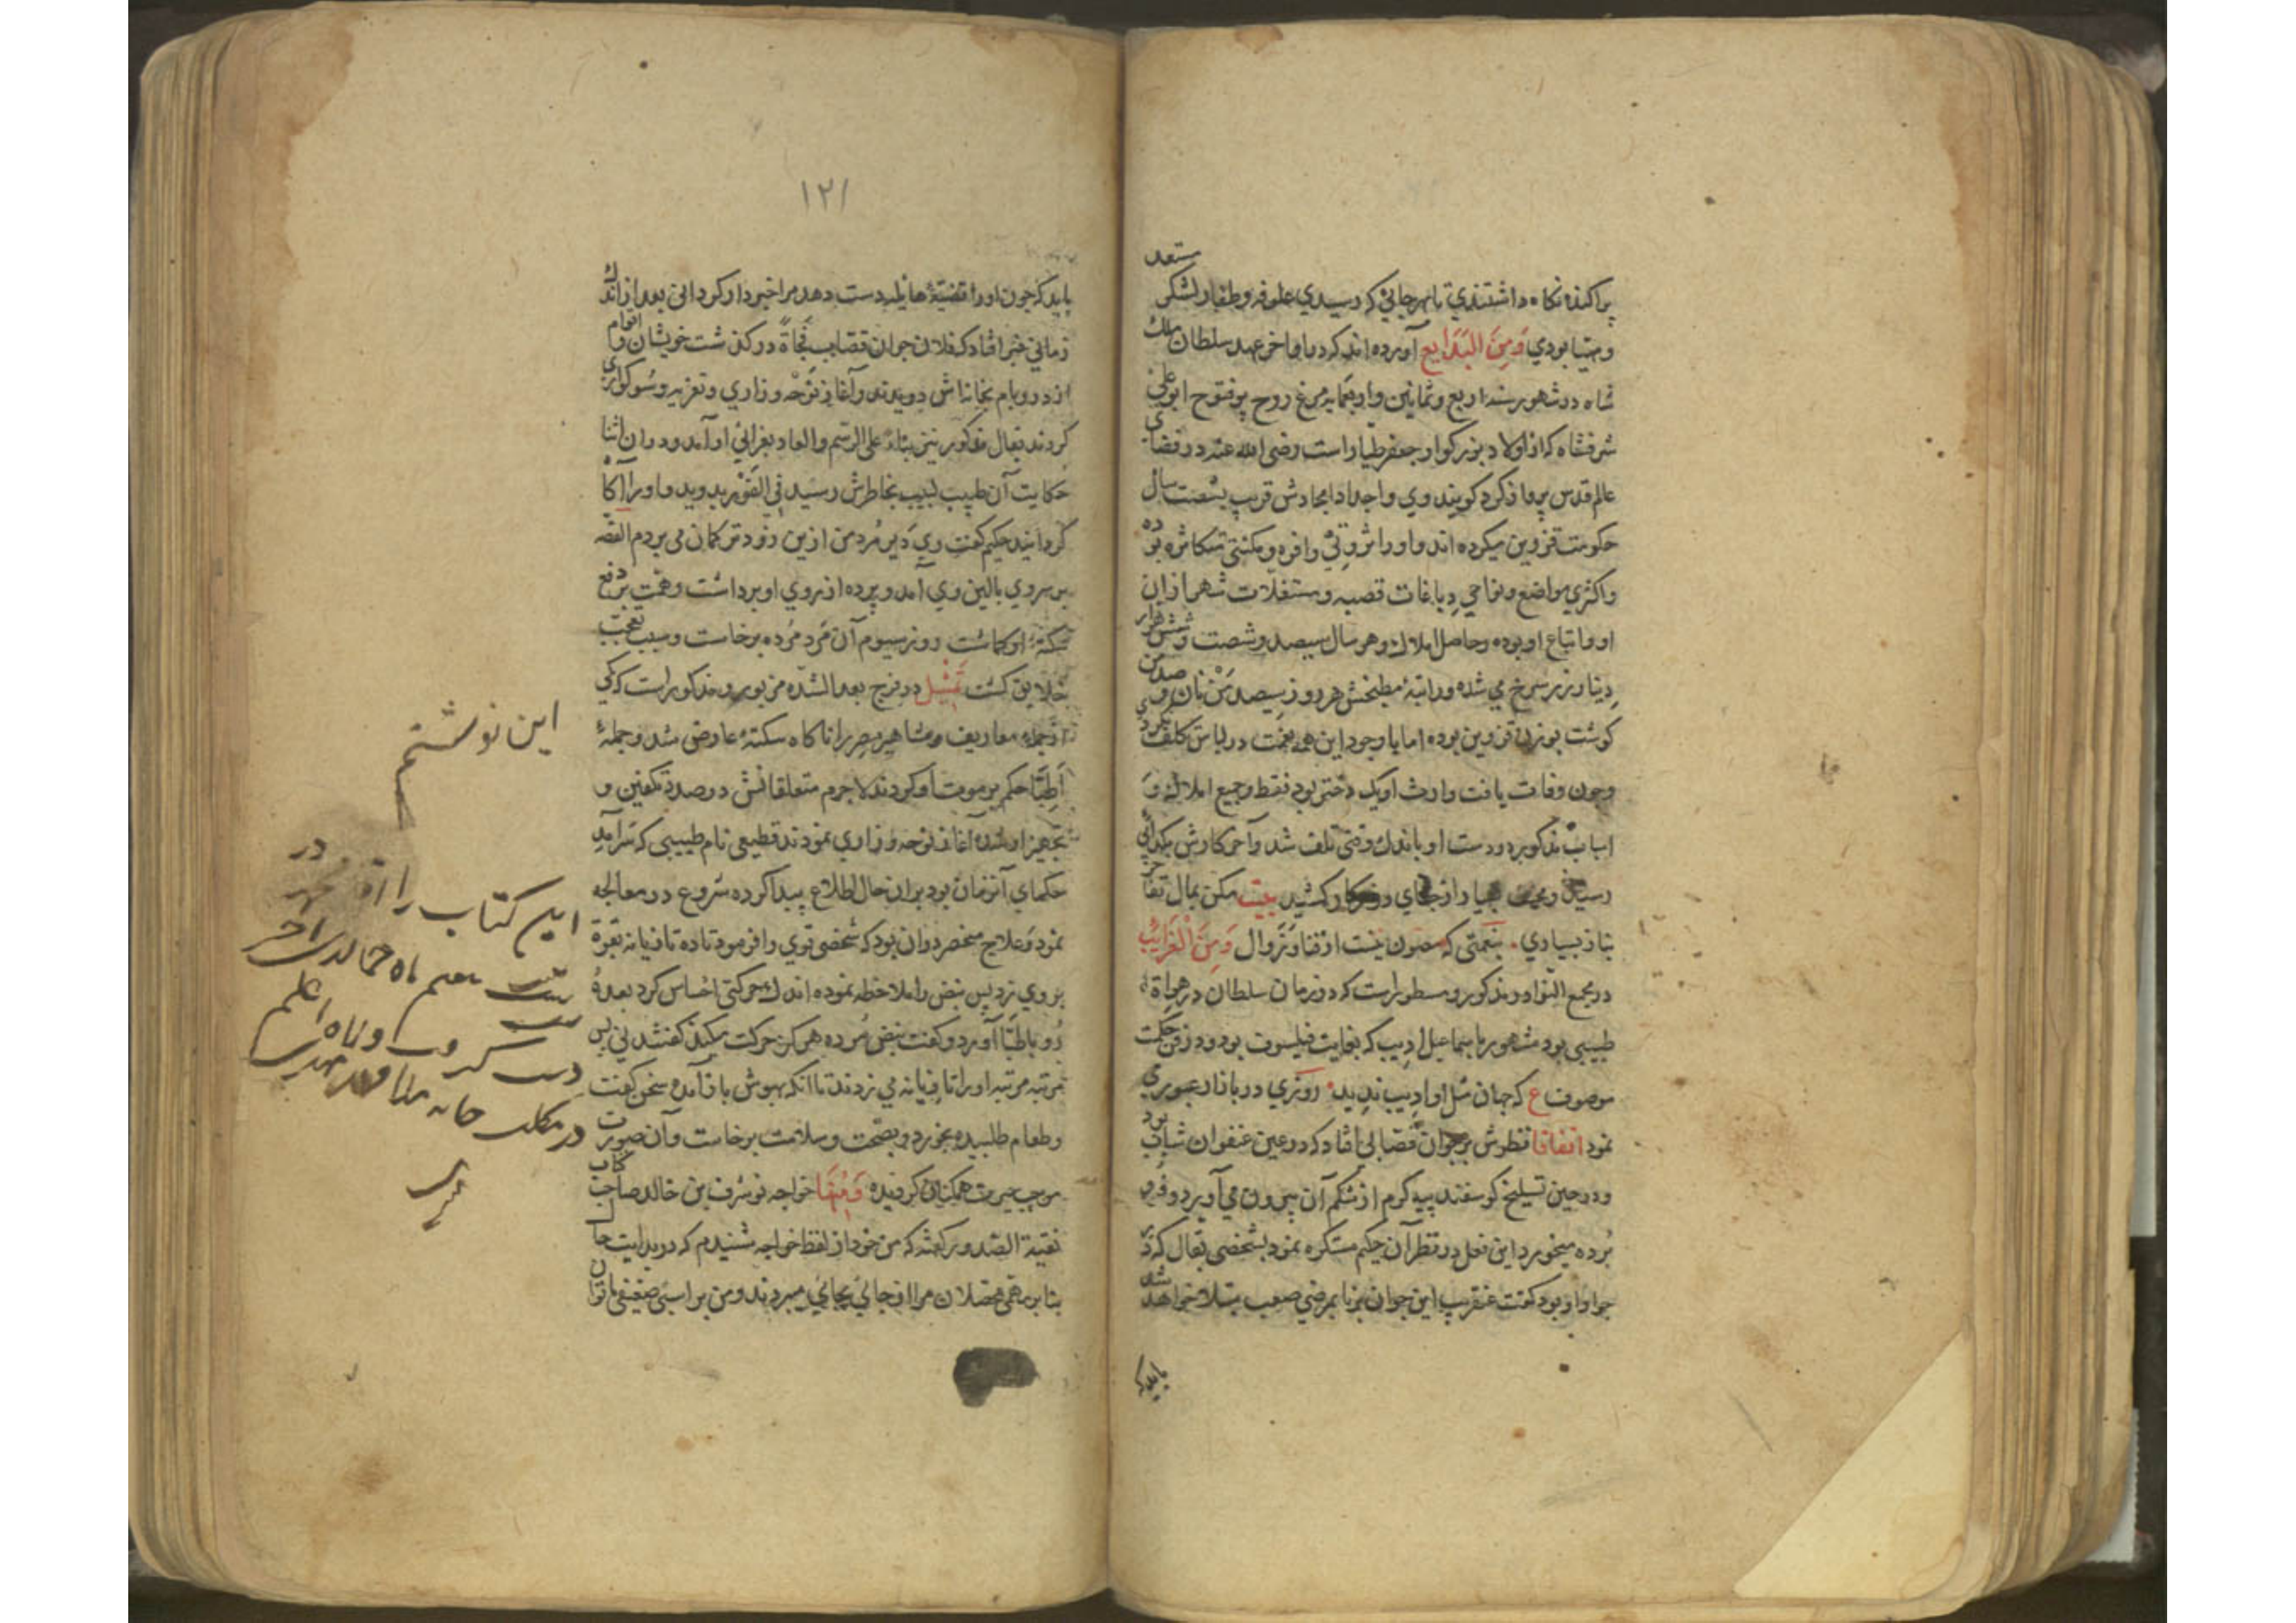 مستعد
پراکنده نکاه داشتندی تا بهر جائی که رسیدی علوفه و طغار لشکر
و مهیا بودی وَمِنَ البَدَایع آورده اند که در اواخر عهد سلطان ملک
شاه در شهور سنه اربع وثمانین واربعمایه مرغ روح پر فتوح ابو علی
شرفشاه که از اولاد بزرکوار جعفر طیار است رضی الله عنه در فضای
عالم قدس پرواز کرد کویند وی و اجداد امجادش قریب بشصت سال
حکومت قزوین میکرده اند و اورا ثروتی وافره و مکنتی متکاثره بوده
واکثری مواضع و نواحی و باغات قصبه و مستغلات شهر ازان
او و اتباع او بوده و حاصل املاک او هر سال سیصد و شصت و شش هزار
دینار زر سرخ می شده و راتبهٔ مطبخش هر روز سیصد من نان و صد من
کوشت بوزن قزوین بوده اما با وجود این همه نعمت در لباس تکلف نکردی
و چون وفات یافت وارث او یک دختر بود فقط و جمیع املاک و
اسباب مذکور در دست او باندک وقتی تلف شد و آخر کارش بکدائی
رسید بیت مکن بمال تفاخر
بناز بسیاری نعمتی که مصون نیست از فنا و زوال وَمِنَ الْغَرَایِب
در مجمع النوادر مذکور و مسطور است که در زمان سلطان در هراة
طبیبی بود مشهور باسماعیل ادیب که بغایت فیلسوف بود و در فن حکمت
موصوف ع که جهان مثل او ادیب ندید روزی در بازار عبوری
نمود اتفاقا نظرش بر جوان قصابی افتاد که در عین عنفوان شباب بود
و در حین تسلیخ کوسفند پیه کرم از شکم آن بیرون می آورد و فرو
برده میخورد این فعل در نظر آن حکیم مستکره نمود بشخصی بقال که در
جوار او بود کفت عنقریب این جوان برنا بمرضی صعب مبتلا خواهد شد
باید که
۱۲۱
باید که چون اورا قضیهٔ هایله دست دهد مرا خبردار کردانی بعد از اندک
زمانی خبر افتاد که فلان جوان قصاب فجاةً در کذشت خویشان و اقوام
از در و بام بخانه اش دویدند و آغاز نوحه و زاری و تعزیه و سوکواری
کردند بقال مذکور نیز بناءً علی الرسم والعاد بعزائی او آمد و در ان اثنا
حکایت آن طبیب لبیب بخاطرش رسید فی الفور بدوید و اورا آکاه
کردانید حکیم کفت وی دیر مرد من ازین زودتر کمان می بردم القصه
بر سر وی بالین وی آمد و پرده از روی او برداشت و همت بر دفع
سکتهٔ او کماشت روز سیوم آن مرد مرده برخاست و سبب تعجب
خلایق کشت تمثیل در فرج بعد الشده مزبور و مذکور است که یکی
از جمله معاریف و مشاهیر مصر را ناکاه سکتهٔ عارض شد و جملهٔ
اطبا حکم بر موت او کردند لاجرم متعلقانش در صدد تکفین و
تجهیز او شده آغاز نوحه و زاری نمودند قطیعی نام طبیبی که سرآمد
حکمای آنزمان بود بران حال اطلاع پیدا کرده شروع در معالجه
نمود و علاج منحصر دران بود که شخصی قوی را فرمود تا ده تازیانه بقوة
بر وی زد پس نبض را ملاحظه نموده اندک حرکتی احساس کرد بعده
رو باطبا آورد و کفت نبض مرده هرکز حرکت میکند کفتند نی پس
مرتبه مرتبه اورا تازیانه می زدند تا آنکه بهوش باز آمده سخن کفت
و طعام طلبیده بخورد و بصحت و سلامت برخاست و آن صورت
موجب حیرت همکنان کردیده وَمِنْهَا خواجه نوشرف بن خالد صاحب کتاب
نفیسة الصدور کفته که من خود از لفظ خواجه شنیدم که در بدایت حال
بنابر مهمی محصلان مرا از جائی بجائی میبردند و من بر اسبی ضعیفی ناتوان
این نوشتم
در
این کتاب را